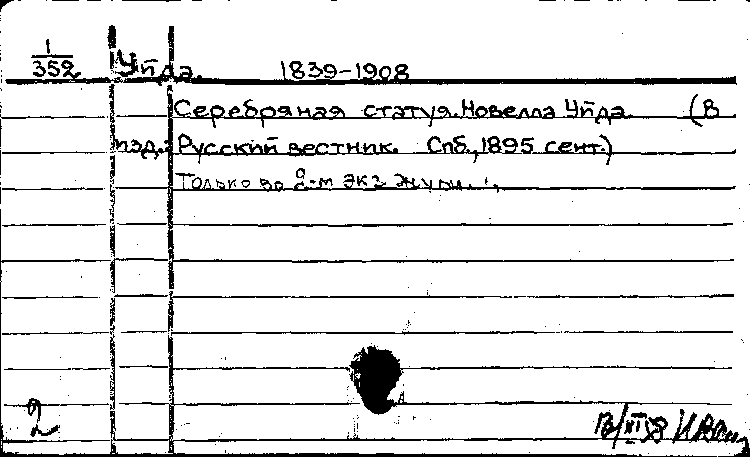 1
352 Уйда. 1839-1908
Серебряная статуя. Новелла Уйда. (В
изд.: Русский вестник. Спб., 1895 сент.)
Только во 2-м экз журн.
2